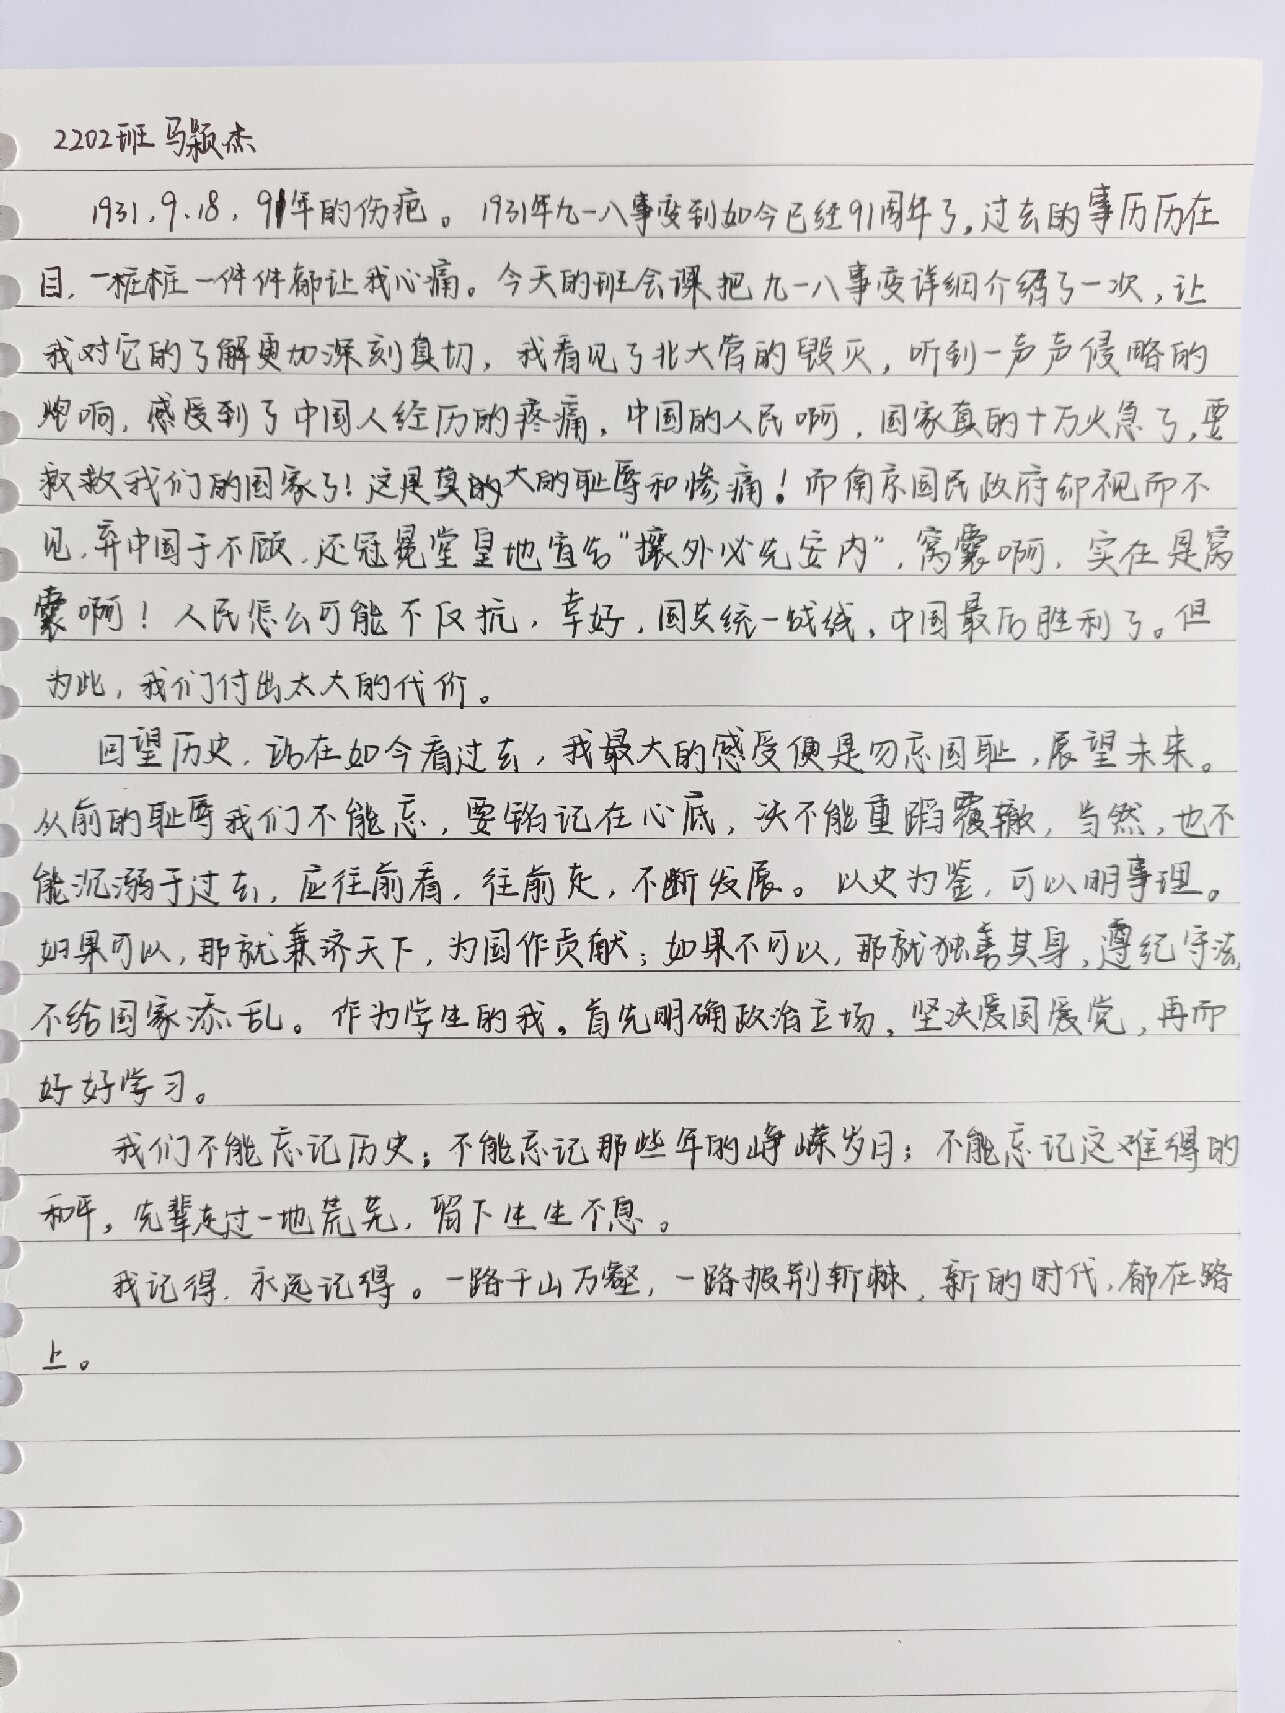 2202班 马颖杰
1931.9.18，91年的伤疤。1931年九一八事变到如今已经91周年了，过去的事历历在
目，一桩桩一件件都让我心痛。今天的班会课把九一八事变详细介绍了一次，让
我对它的了解更加深刻真切，我看见了北大营的毁灭，听到一声声侵略的
炮响，感受到了中国人经历的疼痛，中国的人民啊，国家真的十万火急了，要
救救我们的国家了！这是莫的大的耻辱和惨痛！而南京国民政府却视而不
见，弃中国于不顾，还冠冕堂皇地宣告“攘外必先安内”，窝囊啊，实在是窝
囊啊！人民怎么可能不反抗，幸好，国共统一战线，中国最后胜利了。但
为此，我们付出太大的代价。
回望历史，站在如今看过去，我最大的感受便是勿忘国耻，展望未来。
从前的耻辱我们不能忘，要铭记在心底，决不能重蹈覆辙，当然，也不
能沉溺于过去，应往前看，往前走，不断发展。以史为鉴，可以明事理。
如果可以，那就兼济天下，为国作贡献；如果不可以，那就独善其身，遵纪守法，
不给国家添乱。作为学生的我，首先明确政治立场，坚决爱国爱党，再而
好好学习。
我们不能忘记历史；不能忘记那些年的峥嵘岁月；不能忘记这难得的
和平，先辈走过一地荒芜，留下生生不息。
我记得，永远记得。一路千山万壑，一路披荆斩棘，新的时代，都在路
上。